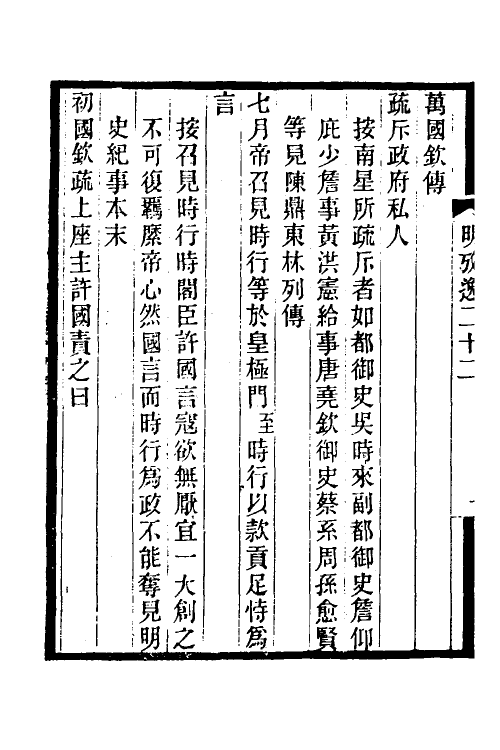 明攷逸二十二
一
萬國欽傳
疏斥政府私人
按南星所疏斥者如都御史吳時來副都御史詹仰
庇少詹事黃洪憲給事唐堯欽御史蔡系周孫愈賢
等見陳鼎東林列傳
七月帝召見時行等於皇極門至時行以款貢足恃爲
言
按召見時行時閣臣許國言寇欲無厭宜一大創之
不可復羈縻帝心然國言而時行爲政不能奪見明
史紀事本末
初國欽疏上座主許國責之曰